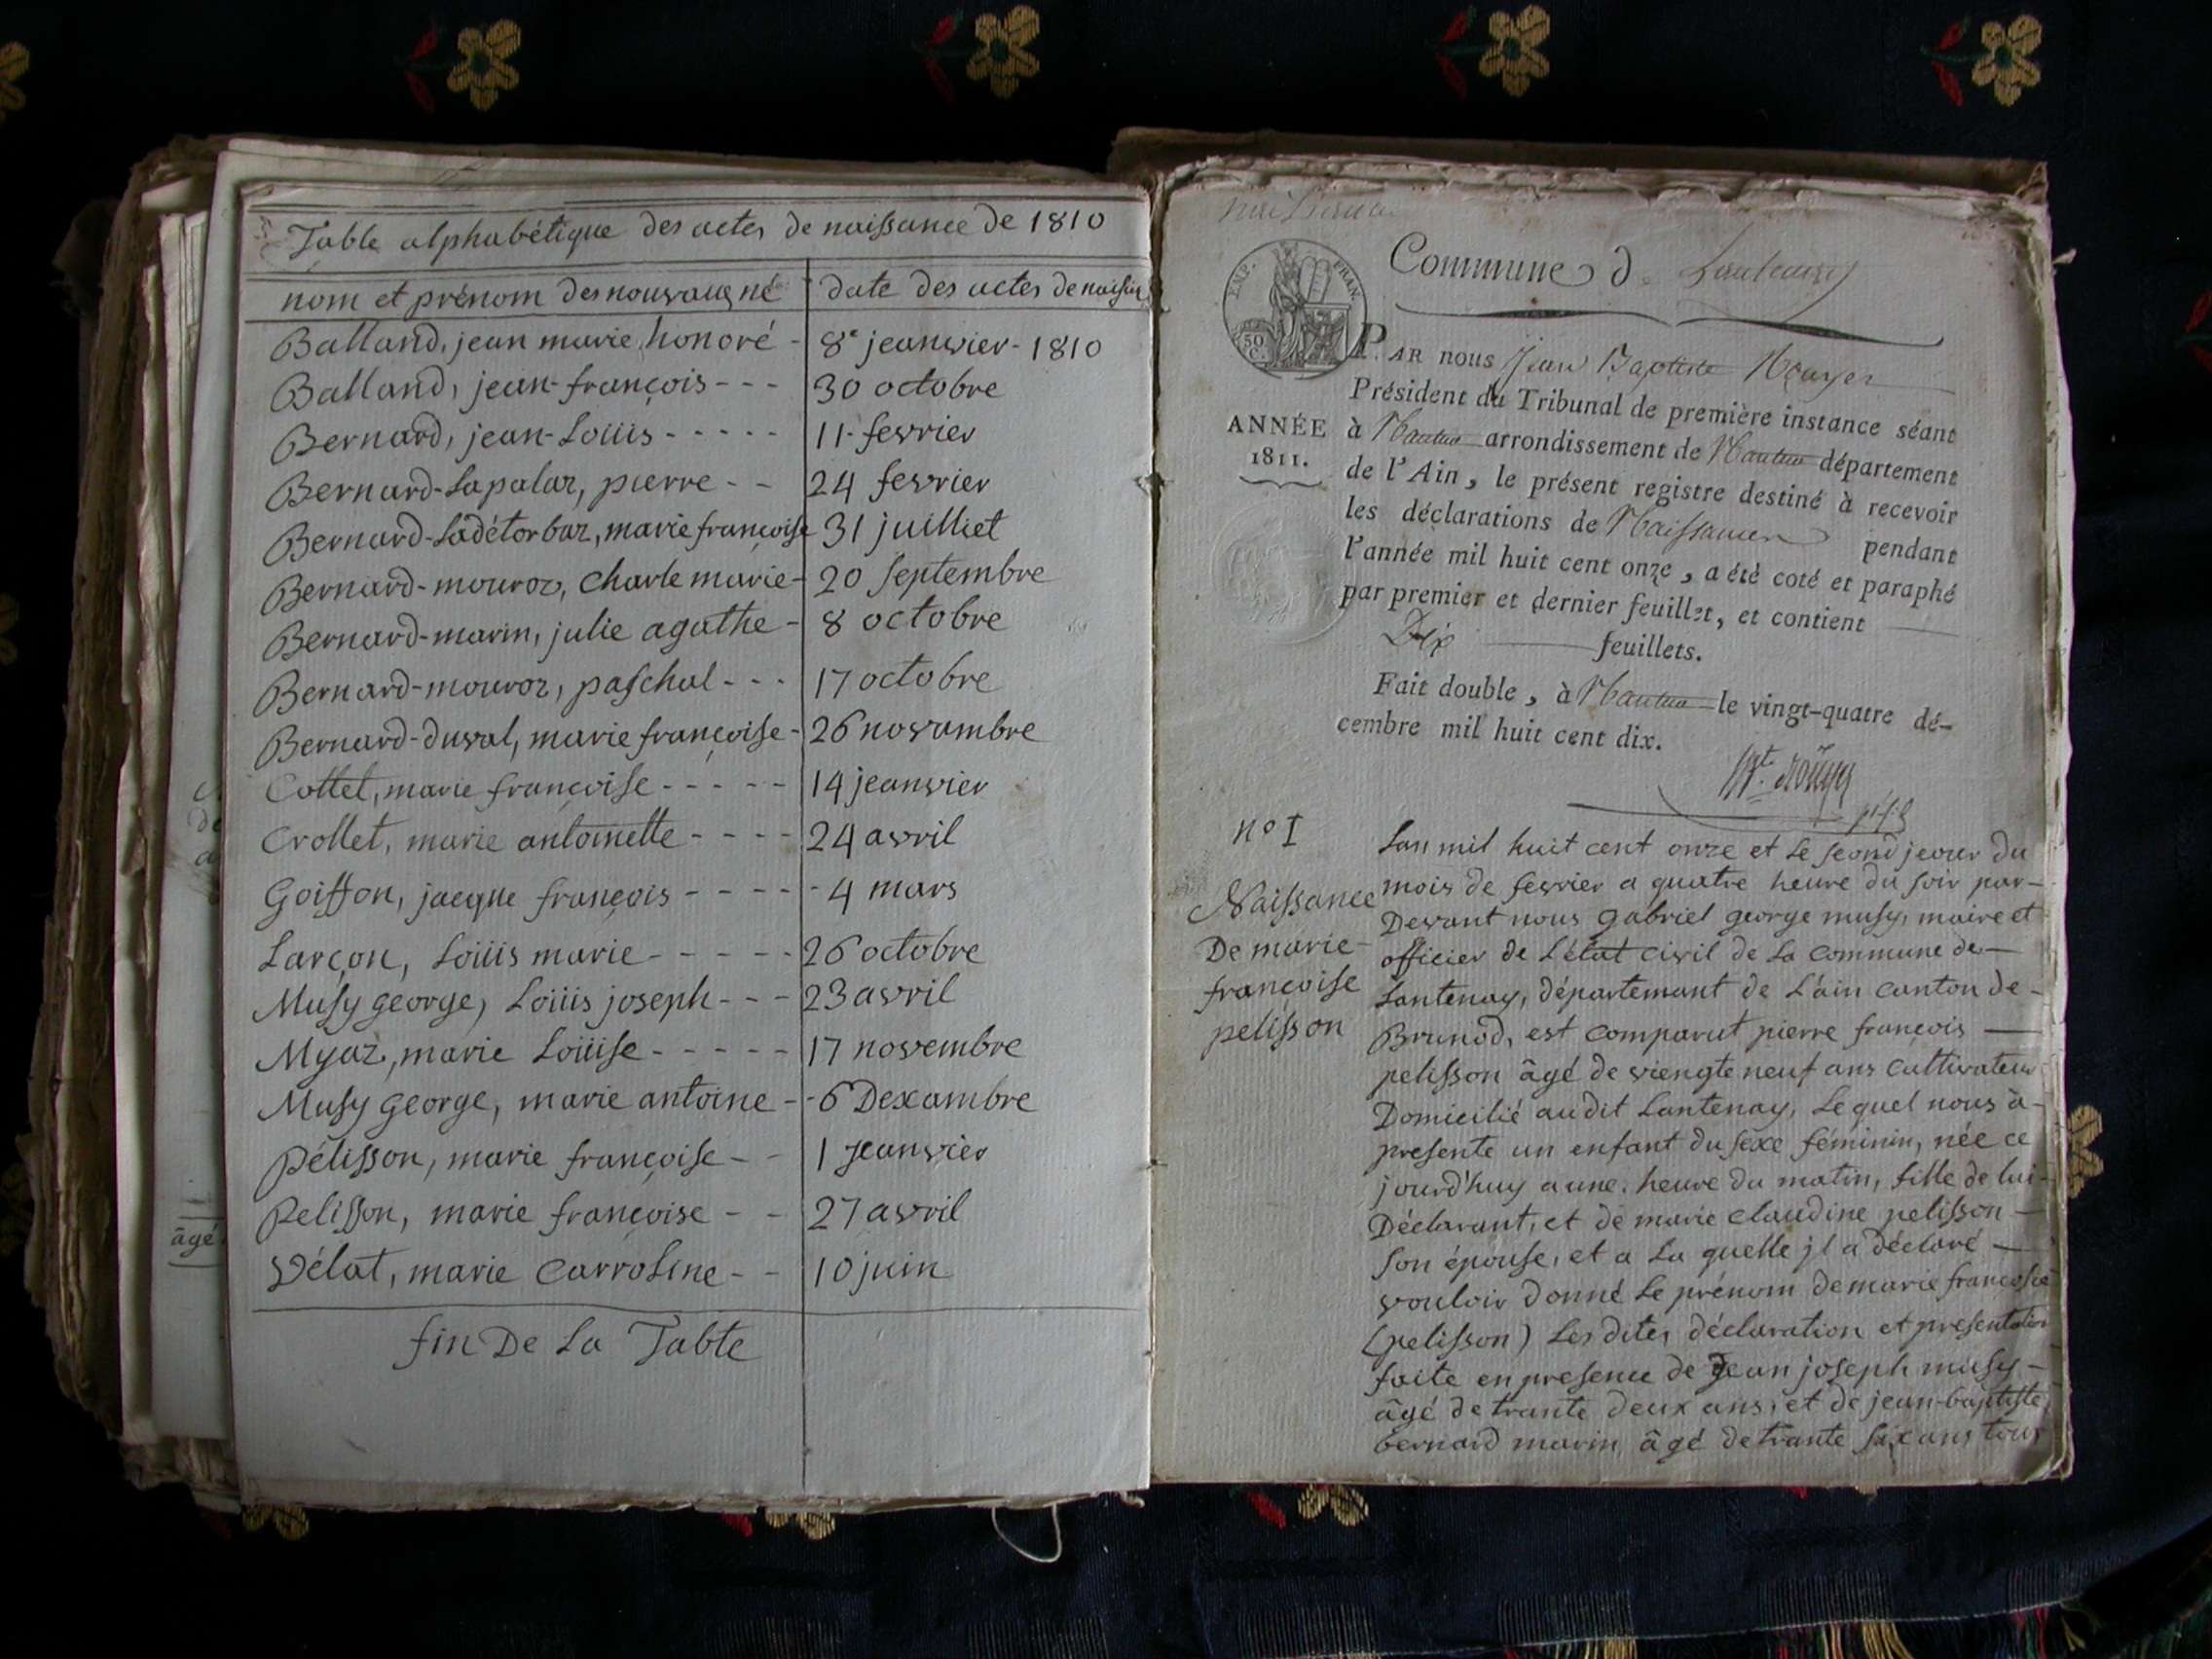 Table alphabétique des actes de naissance de 1810
nom et prénom des nouvaus né
date des actes de naissan
Balland, jean marie honoré - 8e jeanvier - 1810
Balland, jean-françois - - - 30 octobre
Bernard, jean-Loüis - - - - - 11 fevrier
Bernard-Lapalaz, pierre - - 24 fevrier
Bernard-Ladétorbaz, marie françoise 31 juilliet
Bernard-mouroz, Charle marie - 20 septembre
Bernard-marin, julie agathe - 8 octobre
Bernard-mouroz, paschal - - - 17 octobre
Bernard-duval, marie françoise - 26 novambre
Cottet, marie françoise - - - - - 14 jeanvier
Crollet, marie antoinette - - - - 24 avril
Goiffon, jacque françois - - - - - 4 mars
Larçon, Loüis marie - - - - - 26 octobre
Musy george, Loüis joseph - - - 23 avril
Myaz, marie Loüise - - - - - 17 novembre
Musy george, marie antoine - - 6 Dexambre
Pélisson, marie françoise - - 1 Jeanvier
Pelisson, marie françoise - - 27 avril
Vélat, marie Carroline - - 10 juin
fin De La Table
âgé
EMP. FRAN.
50 C.
Commune d Lantenay
PAR nous Jean Baptiste Rouyer
Président du Tribunal de première instance séant
ANNÉE
1811.
à Nantua arrondissement de Nantua département
de l'Ain, le présent registre destiné à recevoir
les déclarations de Naissances pendant
l'année mil huit cent onze, a été coté et paraphé
par premier et dernier feuillet, et contient
Dix feuillets.
Fait double, à Nantua le vingt-quatre dé-
cembre mil huit cent dix.
n° I
Naissance
De marie-
françoise
pelisson
Lan mil huit cent onze et le second jeour du
mois de fevrier a quatre heure du soir par-
Devant nous gabriel george musy, maire et
officier de L'état civil de La commune de -
Lantenay, départemant de L'ain canton de -
Brunod, est comparut pierre françois -
pelisson âgé de viengte neuf ans cultivateur
Domicilié au dit Lantenay, Le quel nous à -
presente un enfant du sexe féminin, née ce
jourd'huy a une heure du matin, fille de lui -
Déclarant, et de marie claudine pelisson -
son épouse, et a La quelle jl a déclaré -
vouloir donné Le prénom de marie francoise
(pelisson) Les dites déclaration et presentation
faite en presence de Jean joseph musy -
âgé de trante deux ans, et de jean-baptiste
bernard marin âgé de trante six ans tous